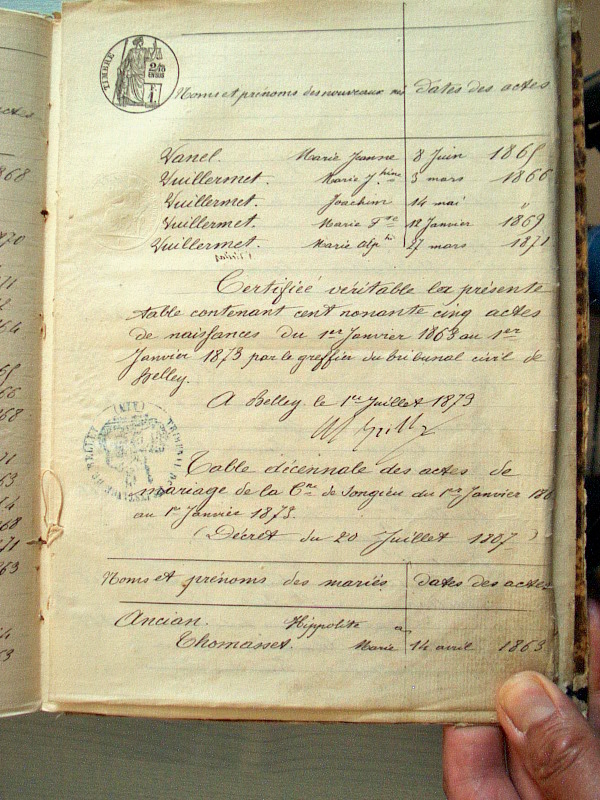 TIMBRE
2/10
EN SUS
F.
1.
Noms et prénoms des nouveaux nés dates des actes
Vanel. Marie Jeanne 8 Juin 1865
Vuillermet. Marie Jhine 3 mars 1866
Vuillermet. Joachim 14 mai "
Vuillermet. Marie Fse 12 Janvier 1869
Vuillermet. Marie Alphse 27 mars 1871
Certifiée véritable la présente
table contenant cent nonante cinq actes
de naissances du 1er Janvier 1863 au 1er
Janvier 1873 par le greffier du tribunal civil de
Belley.
A Belley le 1er Juillet 1873
TRIBUNAL DE
DE BELLEY
(AIN)
Table décennale des actes de
mariage de la Cne de Songieu du 1er Janvier 186
au 1er Janvier 1873.
(Décret du 20 Juillet 1807)
Noms et prénoms des mariés dates des actes
Ancian. Hippolite
Thomasset. Marie 14 avril 1863
1868